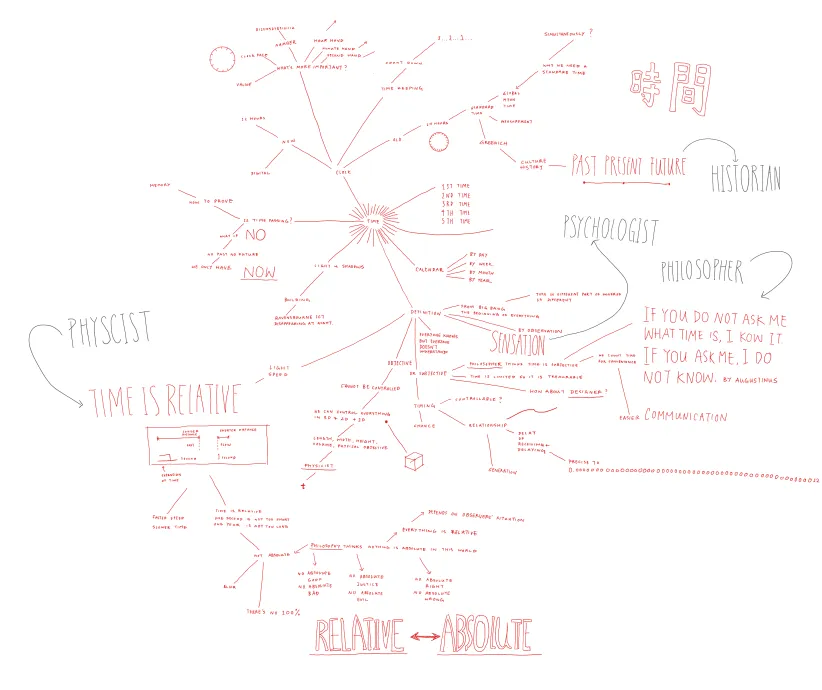 DISCONNECTION
HANGER
HOUR HAND
MINUTE HAND
SECOND HAND
CLOCK FACE
WHAT'S MORE IMPORTANT?
VALUE
COUNT DOWN
3...2...1...
TIME KEEPING
SIMULTANEOUSLY ?
WHY WE NEED A
STANDARD TIME
GLOBAL
MEAN
TIME
STANDARD
TIME
MEASUREMENT
24 HOURS
OLD
GREENWICH
CULTURE
HISTORY
時間
PAST PRESENT FUTURE
HISTORIAN
12 HOURS
NEW
DIGITAL
CLOCK
MEMORY
HOW TO PROVE
IS TIME PASSING?
WHAT IF NO
NO PAST NO FUTURE
WE ONLY HAVE NOW
TIME
1ST TIME
2ND TIME
3RD TIME
4TH TIME
5TH TIME
PSYCHOLOGIST
PHILOSOPHER
CALENDAR
BY DAY
BY WEEK
BY MONTH
BY YEAR
LIGHT IS SHADOWS
BUILDING
DISAPPEARING AT NIGHT.
DEFINITION
FROM BIG BANG
THE BEGINNING OF EVERYTHING
TIME IS DIFFERENT PART OF UNIVERSE
IS DIFFERENT
BY OBSERVATION
SENSATION
EVERYONE KNOWS
BUT EVERYONE
DOESN'T
UNDERSTAND
IF YOU DO NOT ASK ME
WHAT TIME IS, I KOW IT.
IF YOU ASK ME, I DO
NOT KNOW. BY AUGUSTINUS
PHYSCIST
TIME IS RELATIVE
LIGHT
SPEED
OBJECTIVE
OR SUBJECTIVE
PHILOSOPHER THINKS TIME IS SUBJECTIVE
TIME IS LIMITED SO IT IS TREASURABLE
HOW ABOUT DESIGNER?
WE COUNT TIME
FOR CONVENIENCE
EASIER COMMUNICATION
CANNOT BE CONTROLLED
WE CAN CONTROL EVERYTHING
IN 2D & 3D
LENGTH, WIDTH, HEIGHT,
VOLUME, PHYSICAL OBJECTIVE
PHYSICIST
t
TIMING
CONTROLLABLE?
CHANCE
RELATIONSHIP
GENERATION
DELAY
OF
RECEIVING
DELAYING
PRECISE TO
LONGER
DISTANCE
SHORTER DISTANCE
FAST
SLOW
1 SECOND
1 SECOND
EXPANSION
OF TIME
FASTER SPEED
SLOWER TIME
TIME IS RELATIVE
ONE SECOND IS NOT TOO SHORT
ONE YEAR IS NOT TOO LONG
NOT ABSOLUTE
BLUR
THERE'S NO 100%
PHILOSOPHY THINKS NOTHING IS ABSOLUTE IN THIS WORLD
EVERYTHING IS RELATIVE
DEPENDS ON OBSERVERS' SITUATION
NO ABSOLUTE
GOOD
NO ABSOLUTE
BAD
NO ABSOLUTE
JUSTICE
NO ABSOLUTE
EVIL
NO ABSOLUTE
RIGHT
NO ABSOLUTE
WRONG
RELATIVE ABSOLUTE